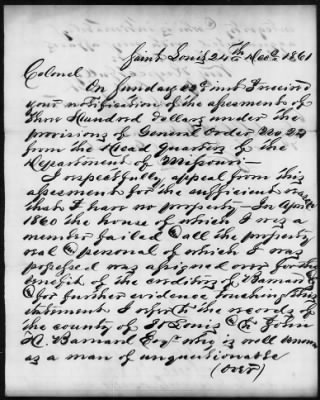 Saint Louis 24th Decr 1861
Colonel
On Sunday 22d inst I received
your notification of the assessment of
Three Hundred dollars under the
provisions of General Order No 24
from the Head Quarters of the
Department of Missouri—
I respectfully appeal from this
assessment for the sufficient reason
that I have no property— In April
1860 the house of which I was a
member failed & all the property
real & personal of which I was
possessed was assigned over for the
benefit of the creditors of Barnard &
& for further evidence touching this
statement I refer to the records of
the county of St Louis & to John
H. Barnard Esqr who is well known
as a man of unquestionable
(over)